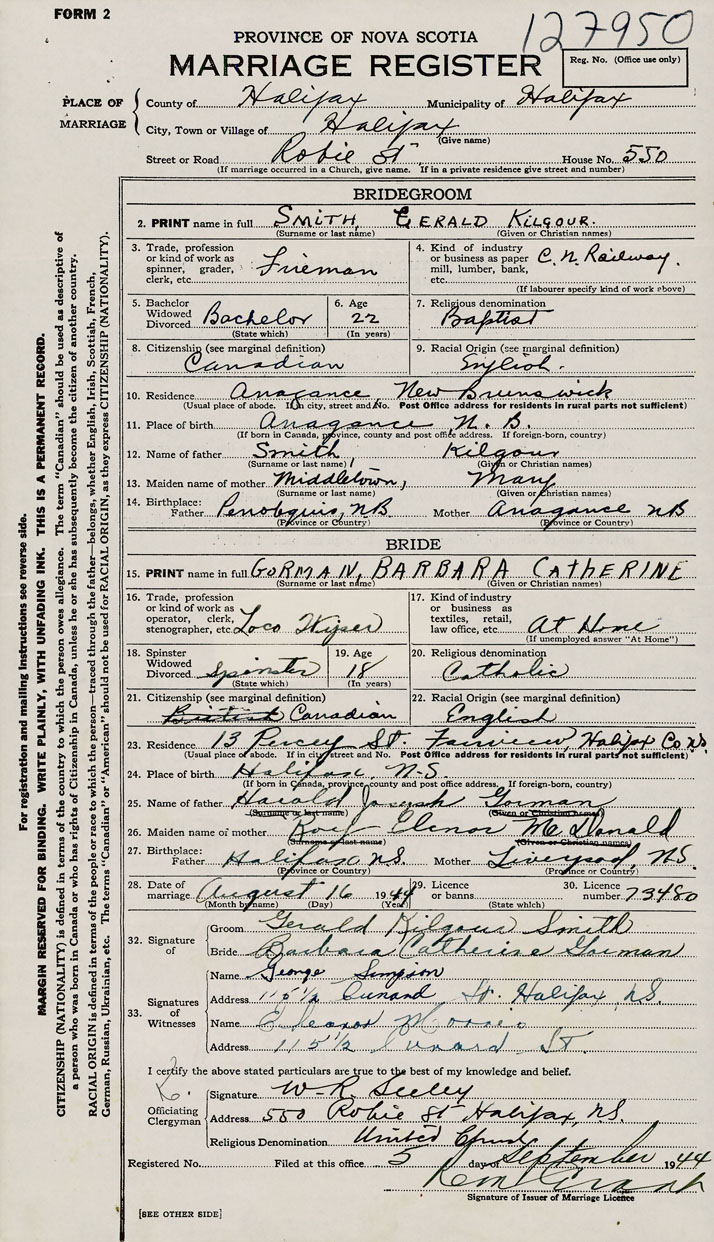 FORM 2
127950
PROVINCE OF NOVA SCOTIA
MARRIAGE REGISTER
Reg. No. (Office use only)
PLACE OF MARRIAGE
County of Halifax Municipality of Halifax
City, Town or Village of Halifax
(Give name)
Street or Road Robie St. House No. 550
(If marriage occurred in a Church, give name. If in a private residence give street and number)
BRIDEGROOM
2. PRINT name in full SMITH, GERALD KILGOUR.
(Surname or last name) (Given or Christian names)
3. Trade, profession or kind of work as spinner, grader, clerk, etc. Fireman
4. Kind of industry or business as paper mill, lumber, bank, etc. C.N. Railway.
(If labourer specify kind of work above)
5. Bachelor Widowed Divorced Bachelor
(State which)
6. Age 22
(In years)
7. Religious denomination
Baptist
8. Citizenship (see marginal definition)
Canadian
9. Racial Origin (see marginal definition)
English.
10. Residence Anagance, New Brunswick
(Usual place of abode. If in city, street and No. Post Office address for residents in rural parts not sufficient)
11. Place of birth Anagance N. B.
(If born in Canada, province, county and post office address. If foreign-born, country)
12. Name of father Smith, Kilgour
(Surname or last name) (Given or Christian names)
13. Maiden name of mother Middletown, Mary
(Surname or last name) (Given or Christian names)
14. Birthplace: Father Penobquis, NB Mother Anagance NB
(Province or Country) (Province or Country)
BRIDE
15. PRINT name in full GORMAN, BARBARA CATHERINE
(Surname or last name) (Given or Christian names)
16. Trade, profession or kind of work as operator, clerk, stenographer, etc. Loco Wiper
17. Kind of industry or business as textiles, retail, law office, etc. At Home
(If unemployed answer "At Home")
18. Spinster Widowed Divorced Spinster
(State which)
19. Age 18
(In years)
20. Religious denomination
Catholic
21. Citizenship (see marginal definition)
British Canadian
22. Racial Origin (see marginal definition)
English
23. Residence 13 Percy St. Fairview, Halifax Co N.S.
(Usual place of abode. If in city street and No. Post Office address for residents in rural parts not sufficient)
24. Place of birth Halifax, N-S.
(If born in Canada, province, county and post office address. If foreign-born, country)
25. Name of father Harald Joseph Gorman
(Surname or last name) (Given or Christian names)
26. Maiden name of mother Elenor McDonald
(Surname or last name) (Given or Christian names)
27. Birthplace: Father Halifax NS. Mother Liverpool, NS.
(Province or Country) (Province or Country)
28. Date of marriage August 16 1944
(Month by name) (Day) (Year)
29. Licence or banns
(State which)
30. Licence number 73480
32. Signature of
Groom Gerald Kilgour Smith
Bride Barbara Catherine Gorman
33. Signatures of Witnesses
Name George Simpson
Address 115 1/2 Cunard St. Halifax, N.S.
Name Eleanor
Address 115 1/2 Cunard St.
I certify the above stated particulars are true to the best of my knowledge and belief.
Officiating Clergyman
Signature W-R. Seeley
Address 550 Robie St Halifax, N.S.
Religious Denomination United Church
Registered No. Filed at this office 5 day of September 1944
Signature of Issuer of Marriage Licence
[SEE OTHER SIDE]
For registration and mailing instructions see reverse side.
MARGIN RESERVED FOR BINDING. WRITE PLAINLY, WITH UNFADING INK. THIS IS A PERMANENT RECORD.
CITIZENSHIP (NATIONALITY) is defined in terms of the country to which the person owes allegiance. The term "Canadian" should be used as descriptive of
a person who was born in Canada or who has rights of Citizenship in Canada, unless he or she has subsequently become the citizen of another country.
RACIAL ORIGIN is defined in terms of the people or race to which the person—traced through the father—belongs, whether English, Irish, Scottish, French,
German, Russian, Ukrainian, etc. The terms "Canadian" or "American" should not be used for RACIAL ORIGIN, as they express CITIZENSHIP (NATIONALITY).